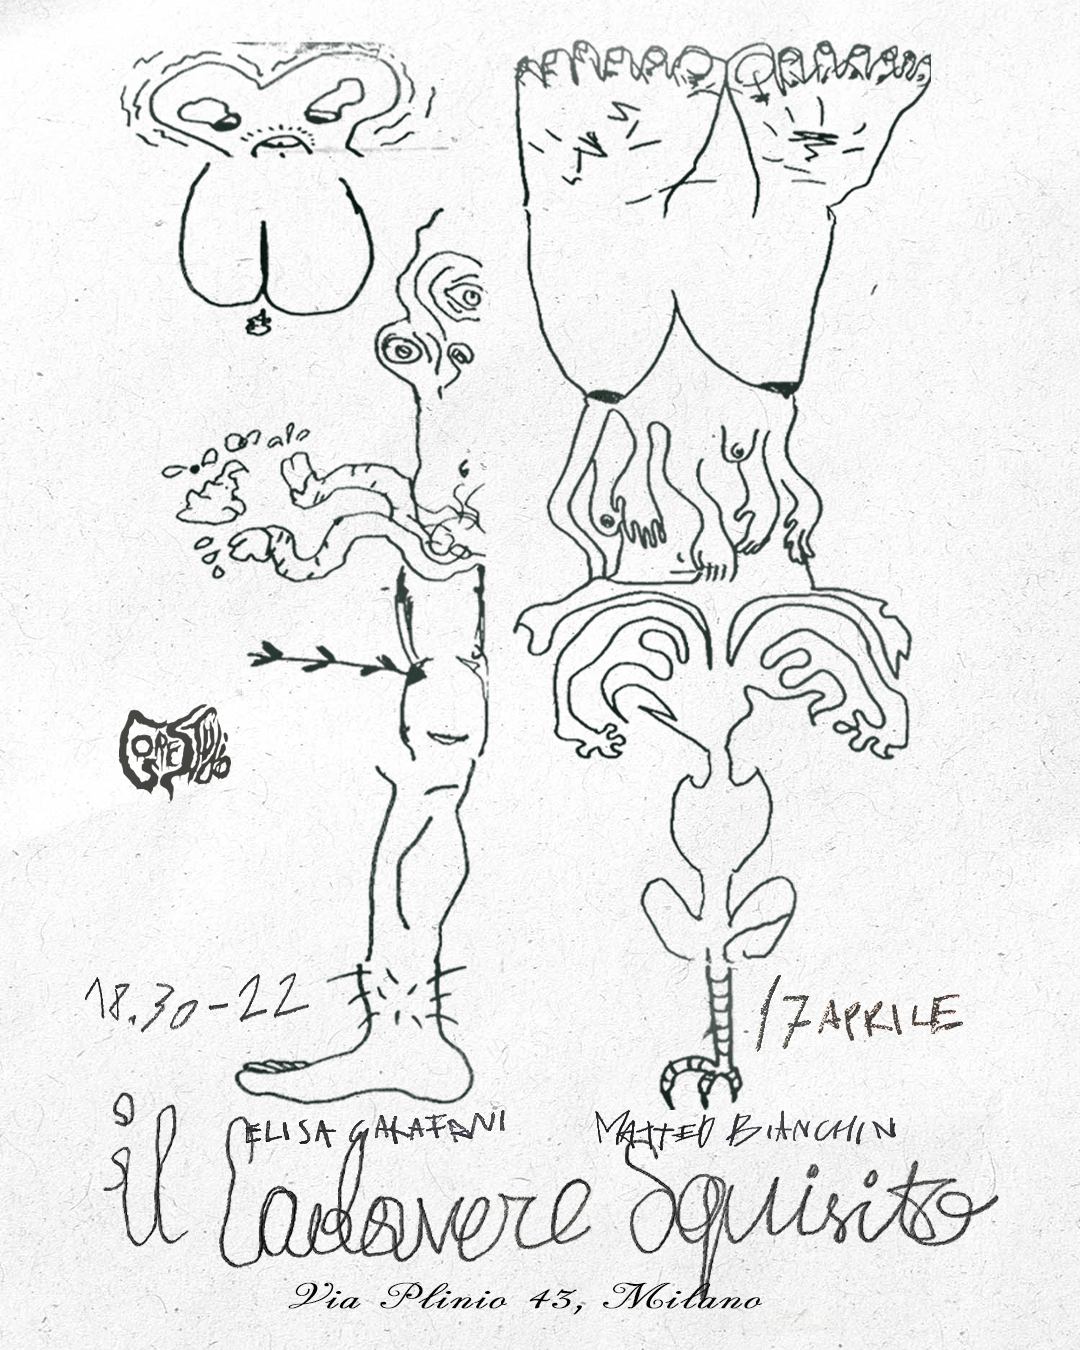 CORE STUDIO
18.30-22
17 APRILE
ELISA
MATTEO BIANCHIN
il Cadavere Squisito
Via Plinio 43, Milano